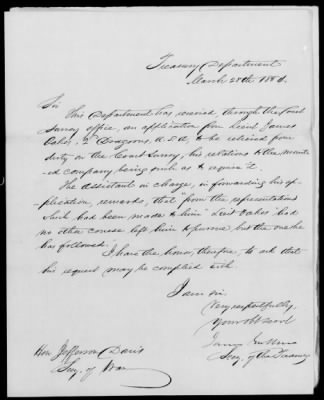 Treasury Department
March 28th 185
Sir
This Department has received, through the Coast
Survey office, an application from Lieut James
Oakes, 2d Dragoons, U.S.A, to be relieved from
duty on the Coast Survey, his relations to the mount-
ed company being such as to require it.
The Assistant in charge, in forwarding his ap-
plication, remarks, that "from the representations
such had been made to him" Lieut Oakes "had
no other course left him to pursue but the one he
has followed." I have the honor, therefore, to ask that
his request may be complied with
I am sir,
Very respectfully,
Your obt servt
James Guthrie
Secy. of the Treasury
Hon Jefferson Davis
Secy. of War